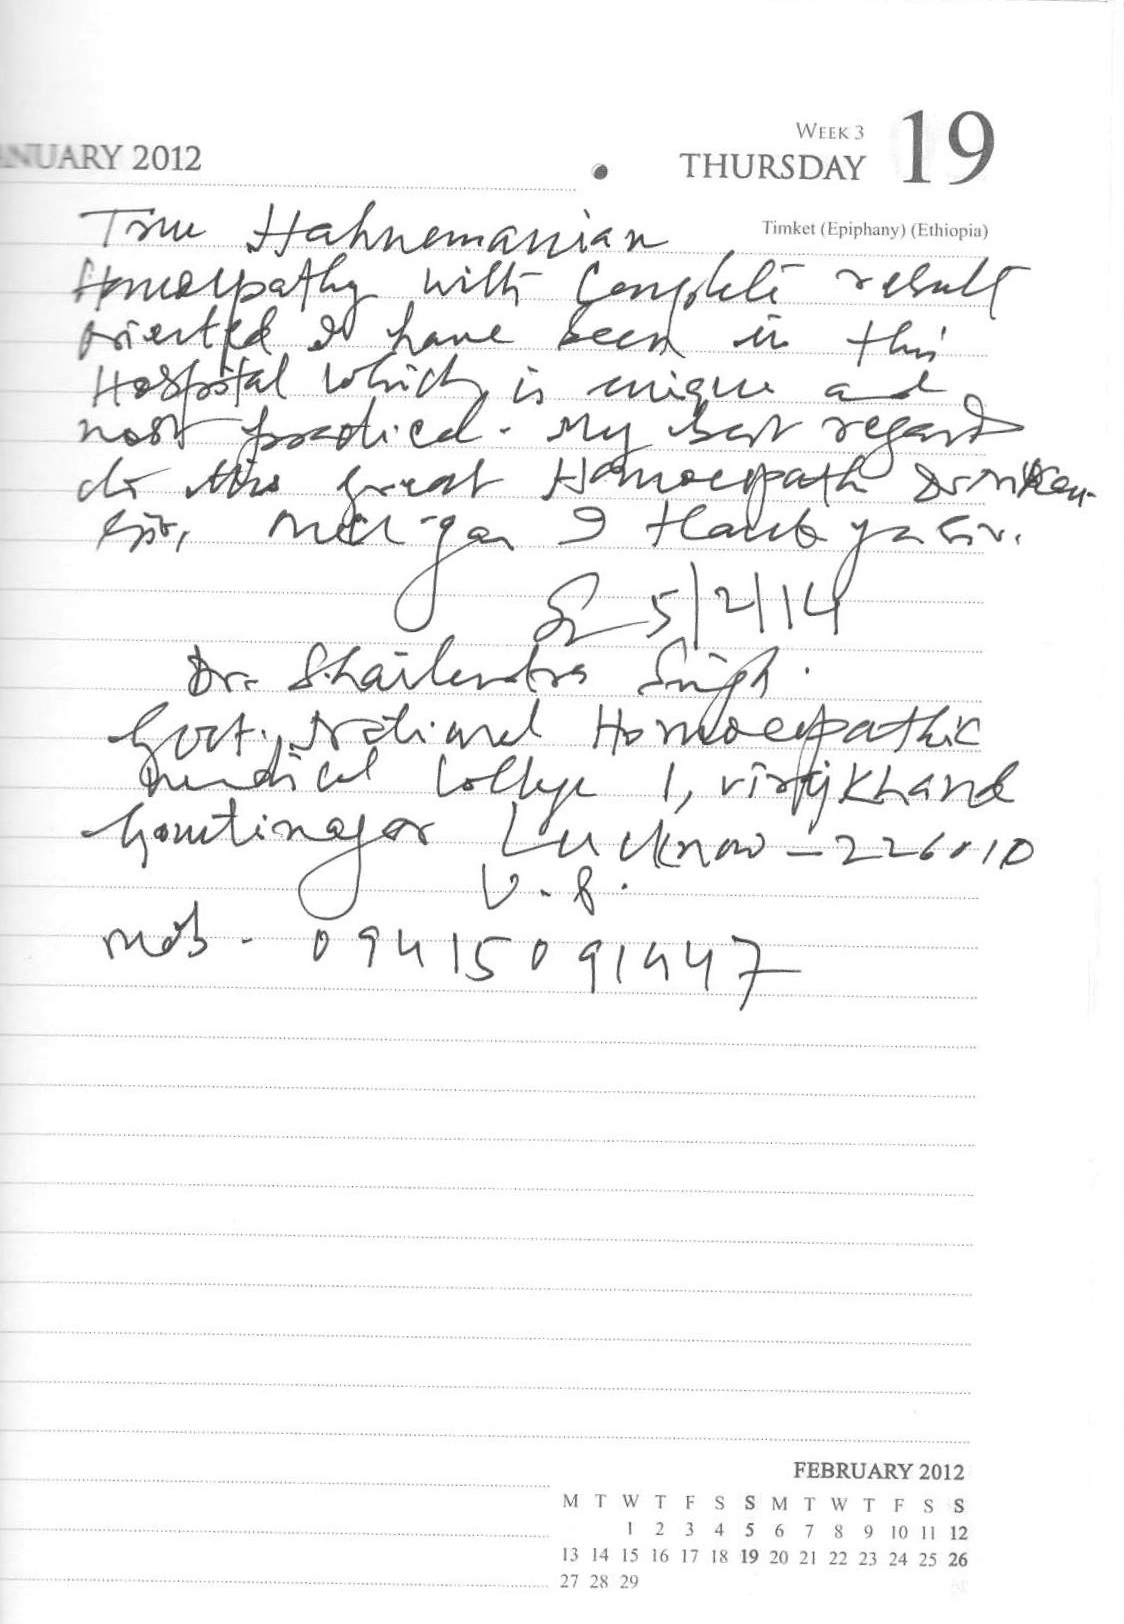 ANUARY 2012
WEEK 3
THURSDAY 19
Timket (Epiphany) (Ethiopia)
True Hahnemannian
Homoeopathy with Complete result
oriented I have seen in this
Hospital which is unique and
most practical. My best regards
to this great Homoeopath Dr
Sir, I thank you Sir.
5/2/14
Dr. Shailendra Singh.
Govt. National Homoeopathic
medical College 1, virajkhand
Gomtinagar Lucknow - 226010
U.P.
mob - 09415091447
FEBRUARY 2012
M T W T F S S M T W T F S S
1 2 3 4 5 6 7 8 9 10 11 12
13 14 15 16 17 18 19 20 21 22 23 24 25 26
27 28 29